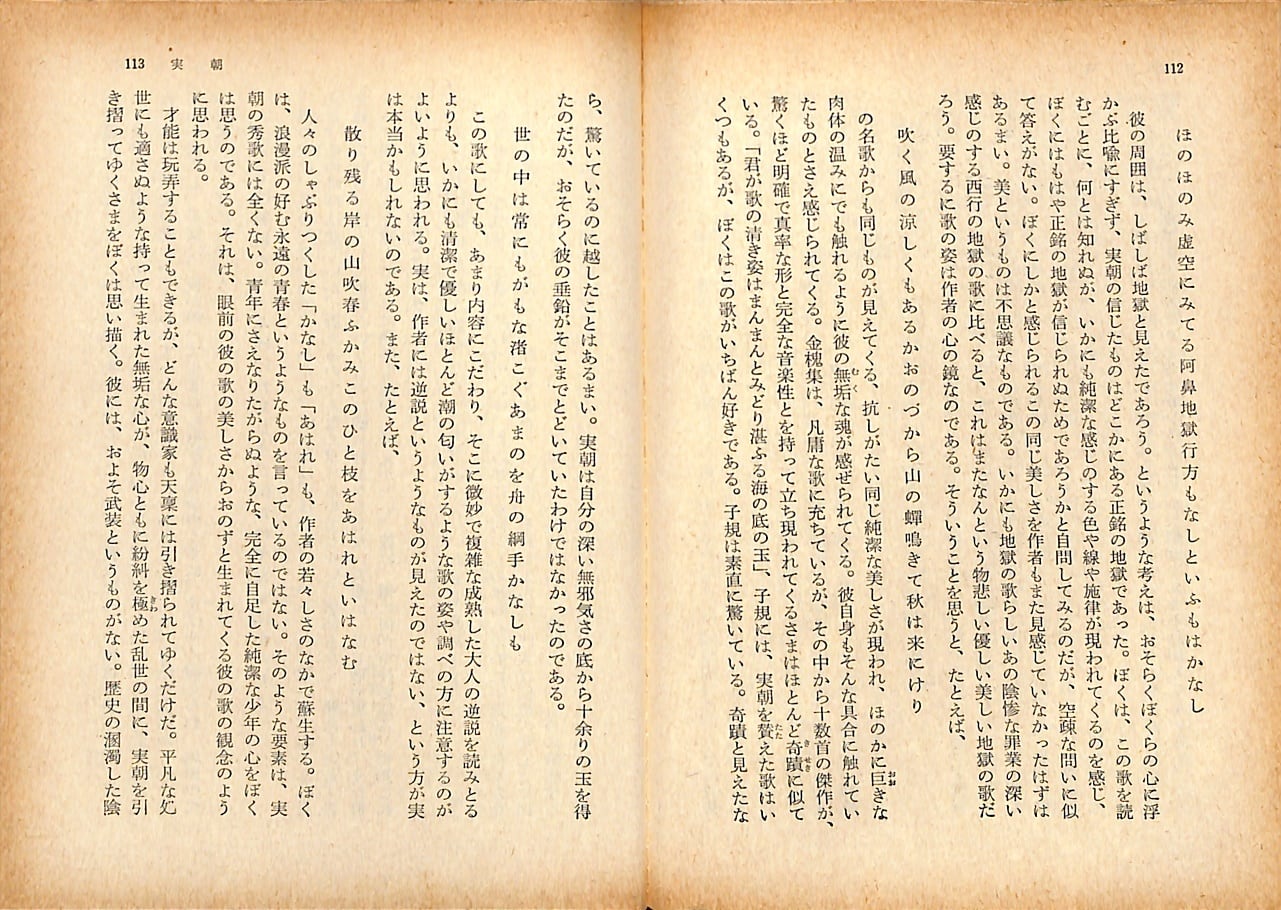 112
ほのほのみ虚空にみてる阿鼻地獄行方もなしといふもはかなし
彼の周囲は、しばしば地獄と見えたであろう。というような考えは、おそらくぼくらの心に浮
かぶ比喩にすぎず、実朝の信じたものはどこかにある正銘の地獄であった。ぼくは、この歌を読
むごとに、何とは知れぬが、いかにも純潔な感じのする色や線や旋律が現われてくるのを感じ、
ぼくにはもはや正銘の地獄が信じられぬためであろうかと自問してみるのだが、空疎な問いに似
て答えがない。ぼくにしかと感じられるこの同じ美しさを作者もまた見感じていなかったはずは
あるまい。美というものは不思議なものである。いかにも地獄の歌らしいあの陰惨な罪業の深い
感じのする西行の地獄の歌に比べると、これはまたなんという物悲しい優しい美しい地獄の歌だ
ろう。要するに歌の姿は作者の心の鏡なのである。そういうことを思うと、たとえば、
吹く風の涼しくもあるかおのづから山の蟬鳴きて秋は来にけり
の名歌からも同じものが見えてくる、抗しがたい同じ純潔な美しさが現われ、ほのかに巨きな
肉体の温みにでも触れるように彼の無垢な魂が感ぜられてくる。彼自身もそんな具合に触れてい
たものとさえ感じられてくる。金槐集は、凡庸な歌に充ちているが、その中から十数首の傑作が、
驚くほど明確で真率な形と完全な音楽性とを持って立ち現われてくるさまはほとんど奇蹟に似て
いる。「君が歌の清き姿はまんまんとみどり湛ふる海の底の玉」、子規には、実朝を賛えた歌はい
くつもあるが、ぼくはこの歌がいちばん好きである。子規は素直に驚いている。奇蹟と見えたな
113 実朝
ら、驚いているのに越したことはあるまい。実朝は自分の深い無邪気さの底から十余りの玉を得
たのだが、おそらく彼の垂鉛がそこまでとどいていたわけではなかったのである。
世の中は常にもがもな渚こぐあまのを舟の綱手かなしも
この歌にしても、あまり内容にこだわり、そこに微妙で複雑な成熟した大人の逆説を読みとる
よりも、いかにも清潔で優しいほとんど潮の匂いがするような歌の姿や調べの方に注意するのが
よいように思われる。実は、作者には逆説というようなものが見えたのではない、という方が実
は本当かもしれないのである。また、たとえば、
散り残る岸の山吹春ふかみこのひと枝をあはれといはなむ
人々のしゃぶりつくした「かなし」も「あはれ」も、作者の若々しさのなかで蘇生する。ぼく
は、浪漫派の好む永遠の青春というようなものを言っているのではない。そのような要素は、実
朝の秀歌には全くない。青年にさえなりたがらぬような、完全に自足した純潔な少年の心をぼく
は思うのである。それは、眼前の彼の歌の美しさからおのずと生まれてくる彼の歌の観念のよう
に思われる。
才能は玩弄することもできるが、どんな意識家も天稟には引き摺られてゆくだけだ。平凡な処
世にも適さぬような持って生まれた無垢な心が、物心ともに紛糾を極めた乱世の間に、実朝を引
き摺ってゆくさまをぼくは思い描く。彼には、およそ武装というものがない。歴史の溷濁した陰